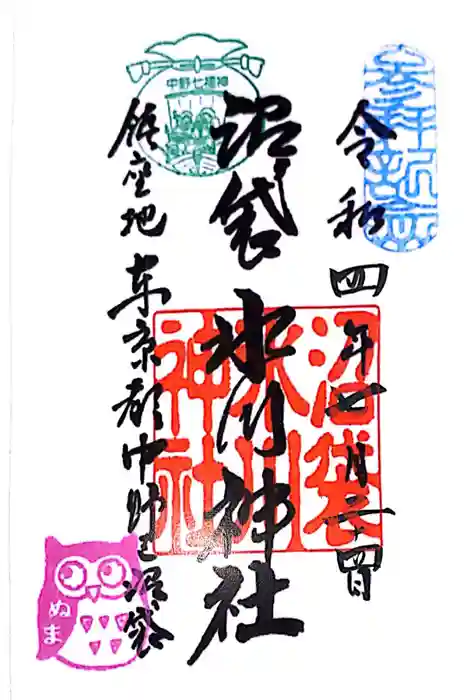 令和四年七月二十四日
沼袋氷川神社
鎮座地 東京都中野区沼袋
中野七福神
沼袋
氷川
神社
ぬま